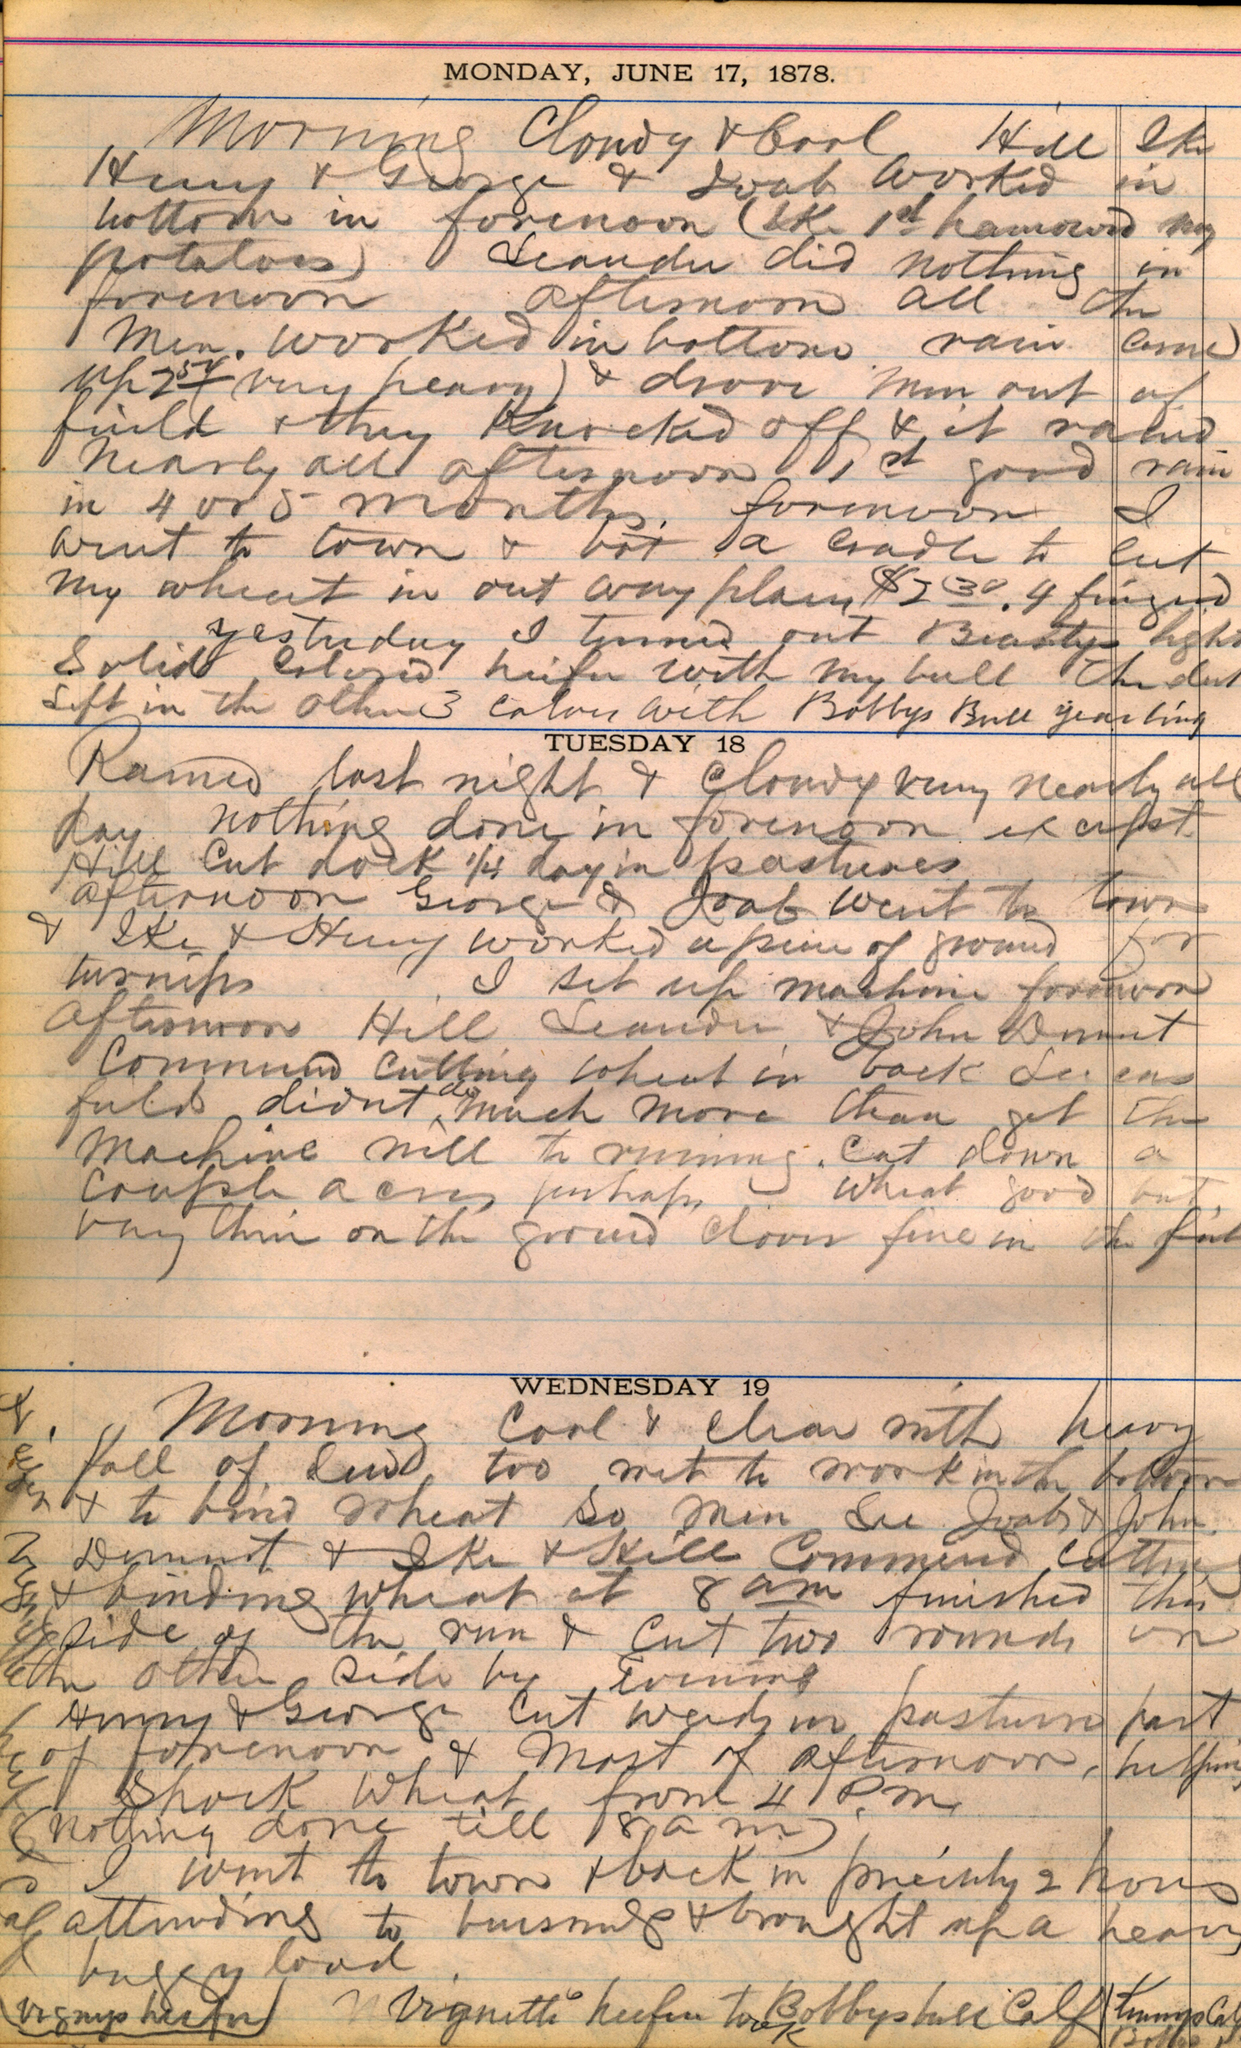 MONDAY, JUNE 17, 1878.
Morning Cloudy & Cool Hill Ike
Henry & George & Joab worked in
bottom in forenoon (Ike 1st harrowed my
potatoes) Leander did nothing in
forenoon afternoon all the
Men. worked in bottom rain came
up 2 (very heavy) & drove men out of
field & they Knocked off & it rained
Nearly all afternoon 1st good rain
in 4 or 5 months. forenoon I
went to town & bot a cradle to cut
my wheat in out way places $2 30. 4 fingered
yesterday I turned out Beautys light
Solid Colored heifer with my bull the
left in the other 3 calves with Bobbys Bull yearling
TUESDAY 18
Rained last night & cloudy very nearly all
day nothing done in forenoon except
Hill Cut dock 1/4 day in pastures
afternoon George & Joab went to town
& Ike & Henry worked a piece of ground for
turnips I set up machine forenoon
Afternoon Hill Leander & John Dement
Commenced Cutting wheat in back Lucas
field didnt do much more than get the
Machine well to running. Cut down a
couple acres perhaps wheat good but
very thin on the ground clover fine in the
WEDNESDAY 19
Morning Cool & clear with heavy
fall of dew too wet to work in the bottom
& to bind wheat So men Lee Joab & John
Dement & Ike & Hill Commenced cutting
& binding wheat at 8 am finished this
side of the run & cut two rounds on
the other side by Evening
Henry & George Cut weeds in pasture part
of forenoon & most of afternoon, helping
Shock wheat from 4 P.m.
(Nothing done till 8 a m)
I went to town & back in precisely 2 hours
attending to business & brought up a heavy
buggy load
(Vignys heifer) Vignette heifer took Bobbys bull Calf